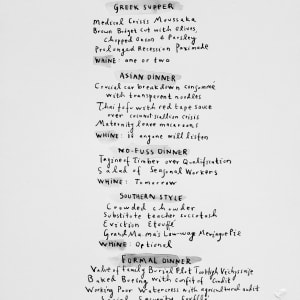 GREEK SUPPER
Medical Crisis Moussaka
Brown Briget Cut with olives,
chopped onion & Parsley
Prolonged Recession Paximade
WHINE: one or two
ASIAN DINNER
Crucial car breakdown consommé
with transparent noodles
Thai tofu with red tape sauce
over coconut bullion crisis
Maternity leave macaroons
WHINE: so anyone will listen
NO-FUSS DINNER
Tagine of Timber over Qualification
Salad of Seasonal Workers
WHINE: Tomorrow
SOUTHERN STYLE
Crowded chowder
Substitute teacher succotash
Eviction Etouffé
GrandMama's Low-wage
WHINE: Optional
FORMAL DINNER
Value of Family Burial Plot
Baked Busing with confit of Credit
Working Poor Watercress with agricultural audit